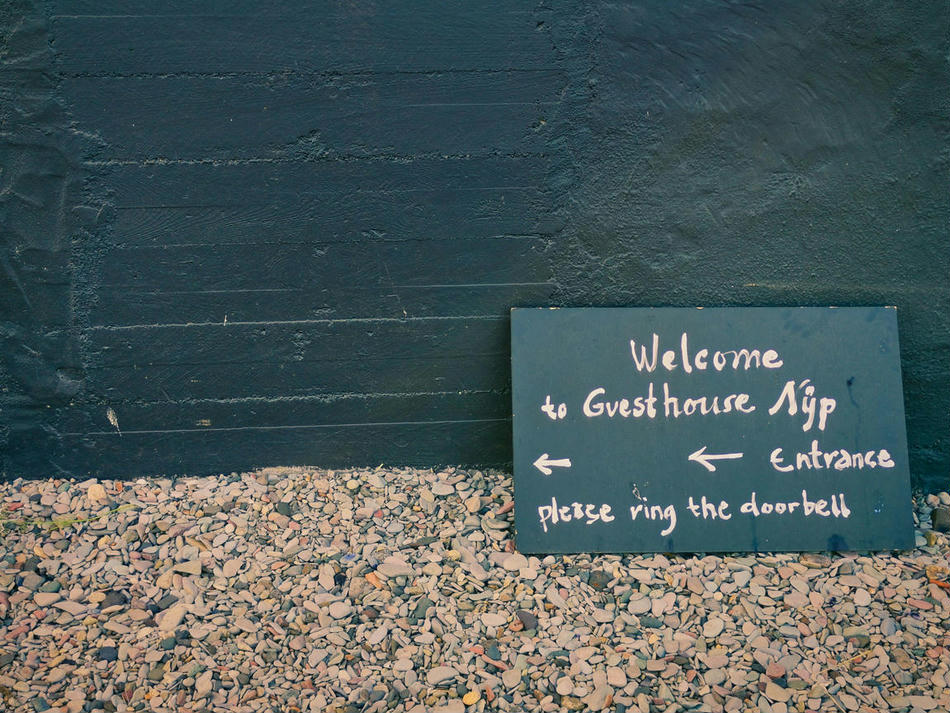 Welcome
to Guesthouse Nýp
← ← Entrance
please ring the doorbell